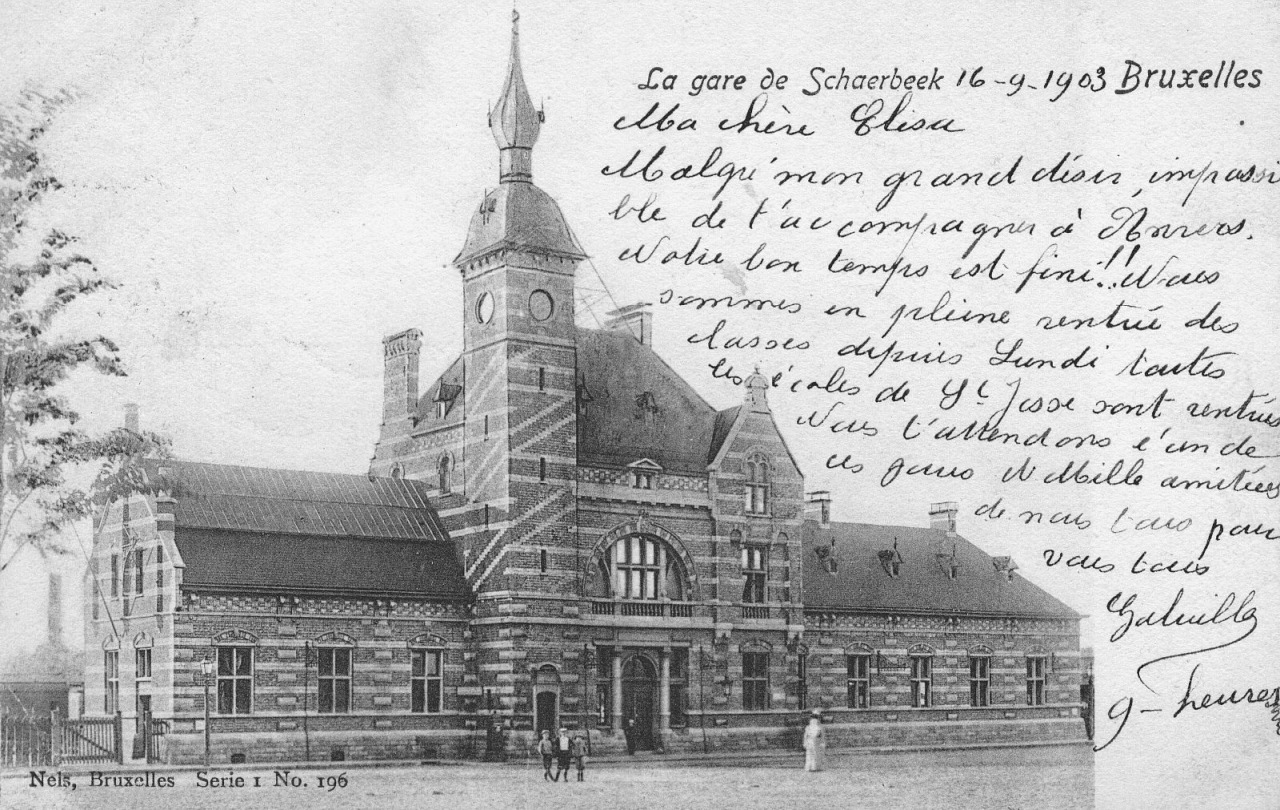 La gare de Schaerbeek 16-9-1903 Bruxelles
Ma chère Elisa
Malgré mon grand désir, impossi
ble de t'accompagner à Anvers.
Notre bon temps est fini!! Nous
sommes en pleine rentrée des
classes depuis Lundi toutes
les écoles de St Josse sont rentrées
Nous t'attendons l'un de
ces jours Mille amitiées
de nous tous pour
vous tous
9 - heures
Nels, Bruxelles Serie 1 No. 196